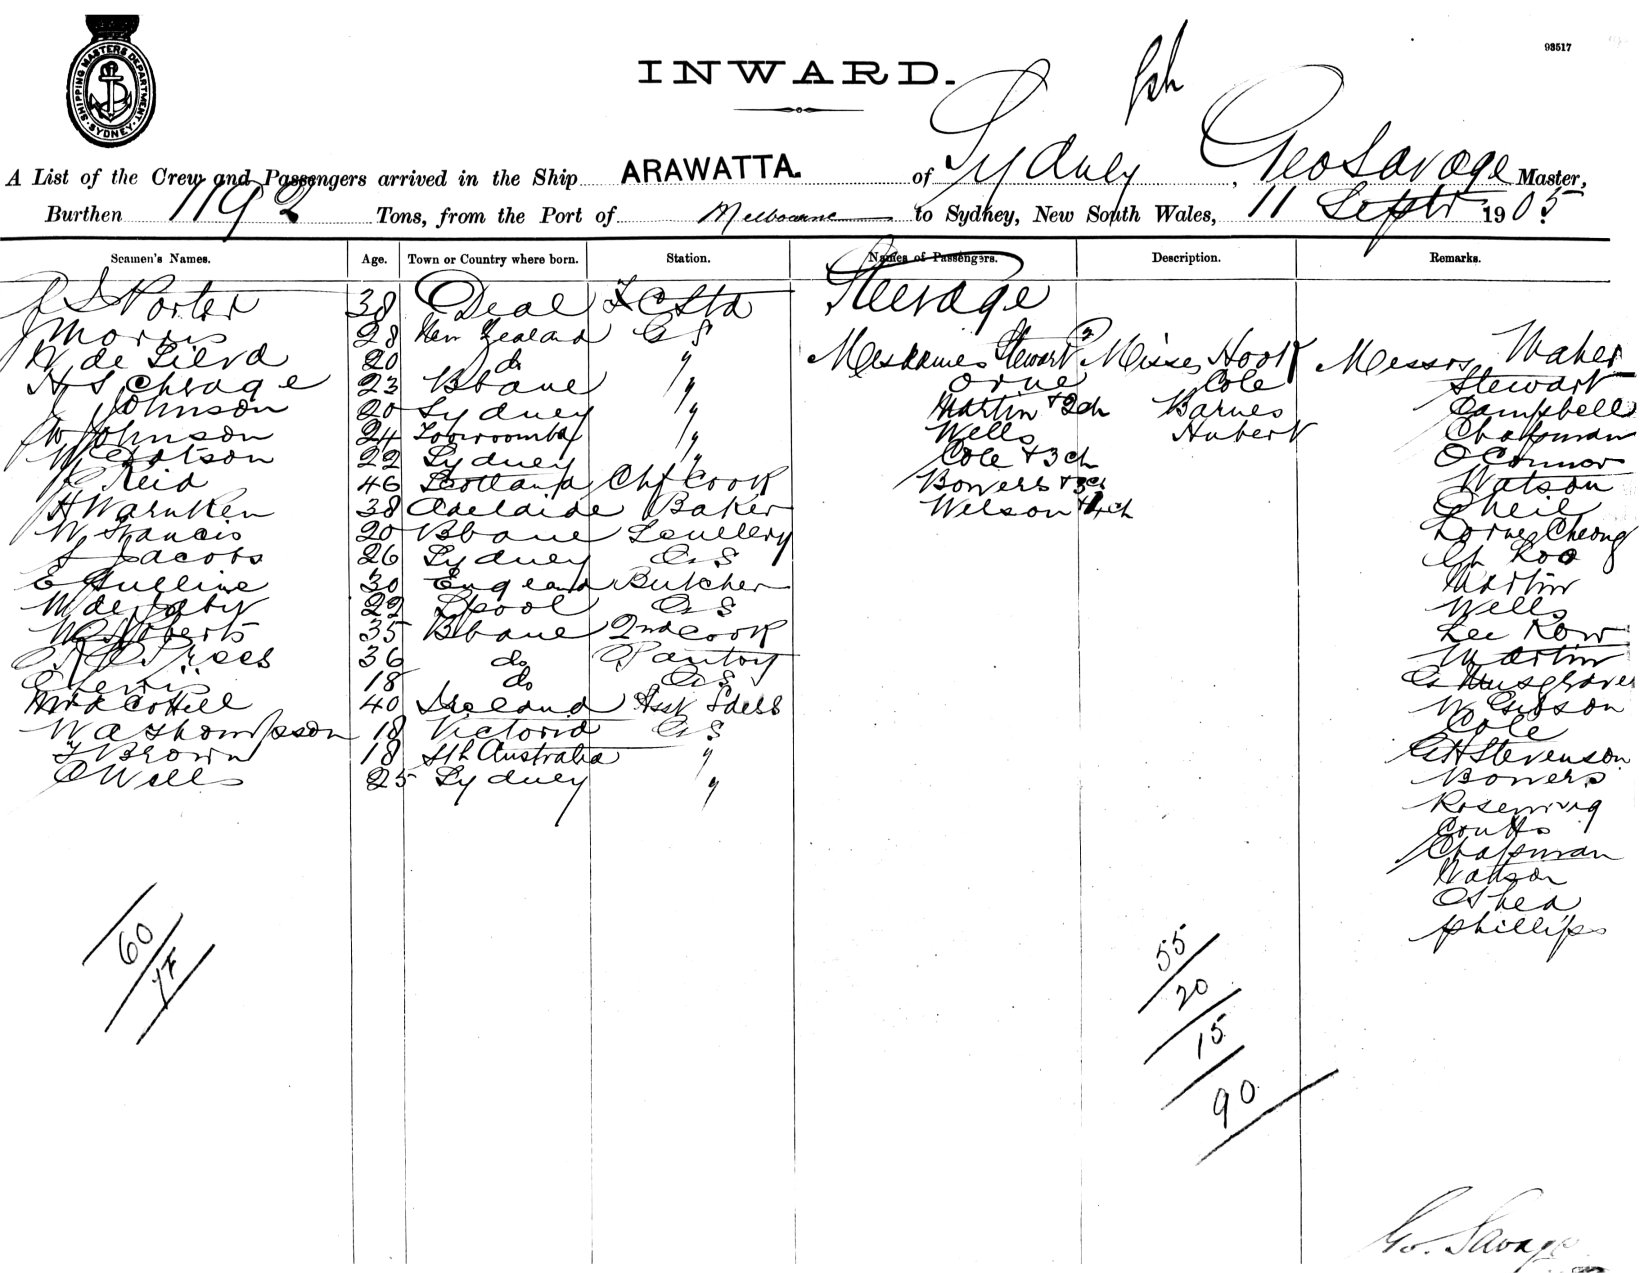 SHIPPING MASTERS DEPARTMENT. SYDNEY.
93517
INWARD.
A List of the Crew and Passengers arrived in the Ship ARAWATTA. of Sydney, Geo Savage Master,
Burthen 1192 Tons, from the Port of Melbourne to Sydney, New South Wales, 11 Septr 1905
Seamen's Names. Age. Town or Country where born. Station. Names of Passengers. Description. Remarks.
Porter 38 Deal Steerage
J Morris 28 New Zealand G S
W de Silva 20 do " Mesdames Stewart Misses Hook Messrs Maher
H S Chrage 23 Bbane " Orne Cole Stewart
J Johnson 20 Sydney " Martin + 2ch Barnes Campbell
W Johnson 24 Toowoomba " Wells Hubert Chapman
W 22 Sydney " Cole + 3 ch O'Connor
Reid 46 Scotland Chf Cook Bowers + 3ch Watson
H Warnken 38 Adelaide Baker Wilson + ch
W Francis 20 Bbane Scullery Cheong
Jacobs 26 Sydney G S
30 England Butcher Martin
22 Lpool G S Wells
W Roberts 35 Bbane 2nd Cook Lee Kow
Trees 36 do Pantry Martin
18 do G S G Musgrave
40 Ireland Asst Sdess W Gibson
W A Thompson 18 Victoria G S Cole
T Brown 18 Sth Australia " G H Stevenson
C Well 25 Sydney " Bowers
Rosenwig
Coutts
Chapman
Watson
O'Shea
Phillips
60
17
55
20
15
90
Geo. Savage